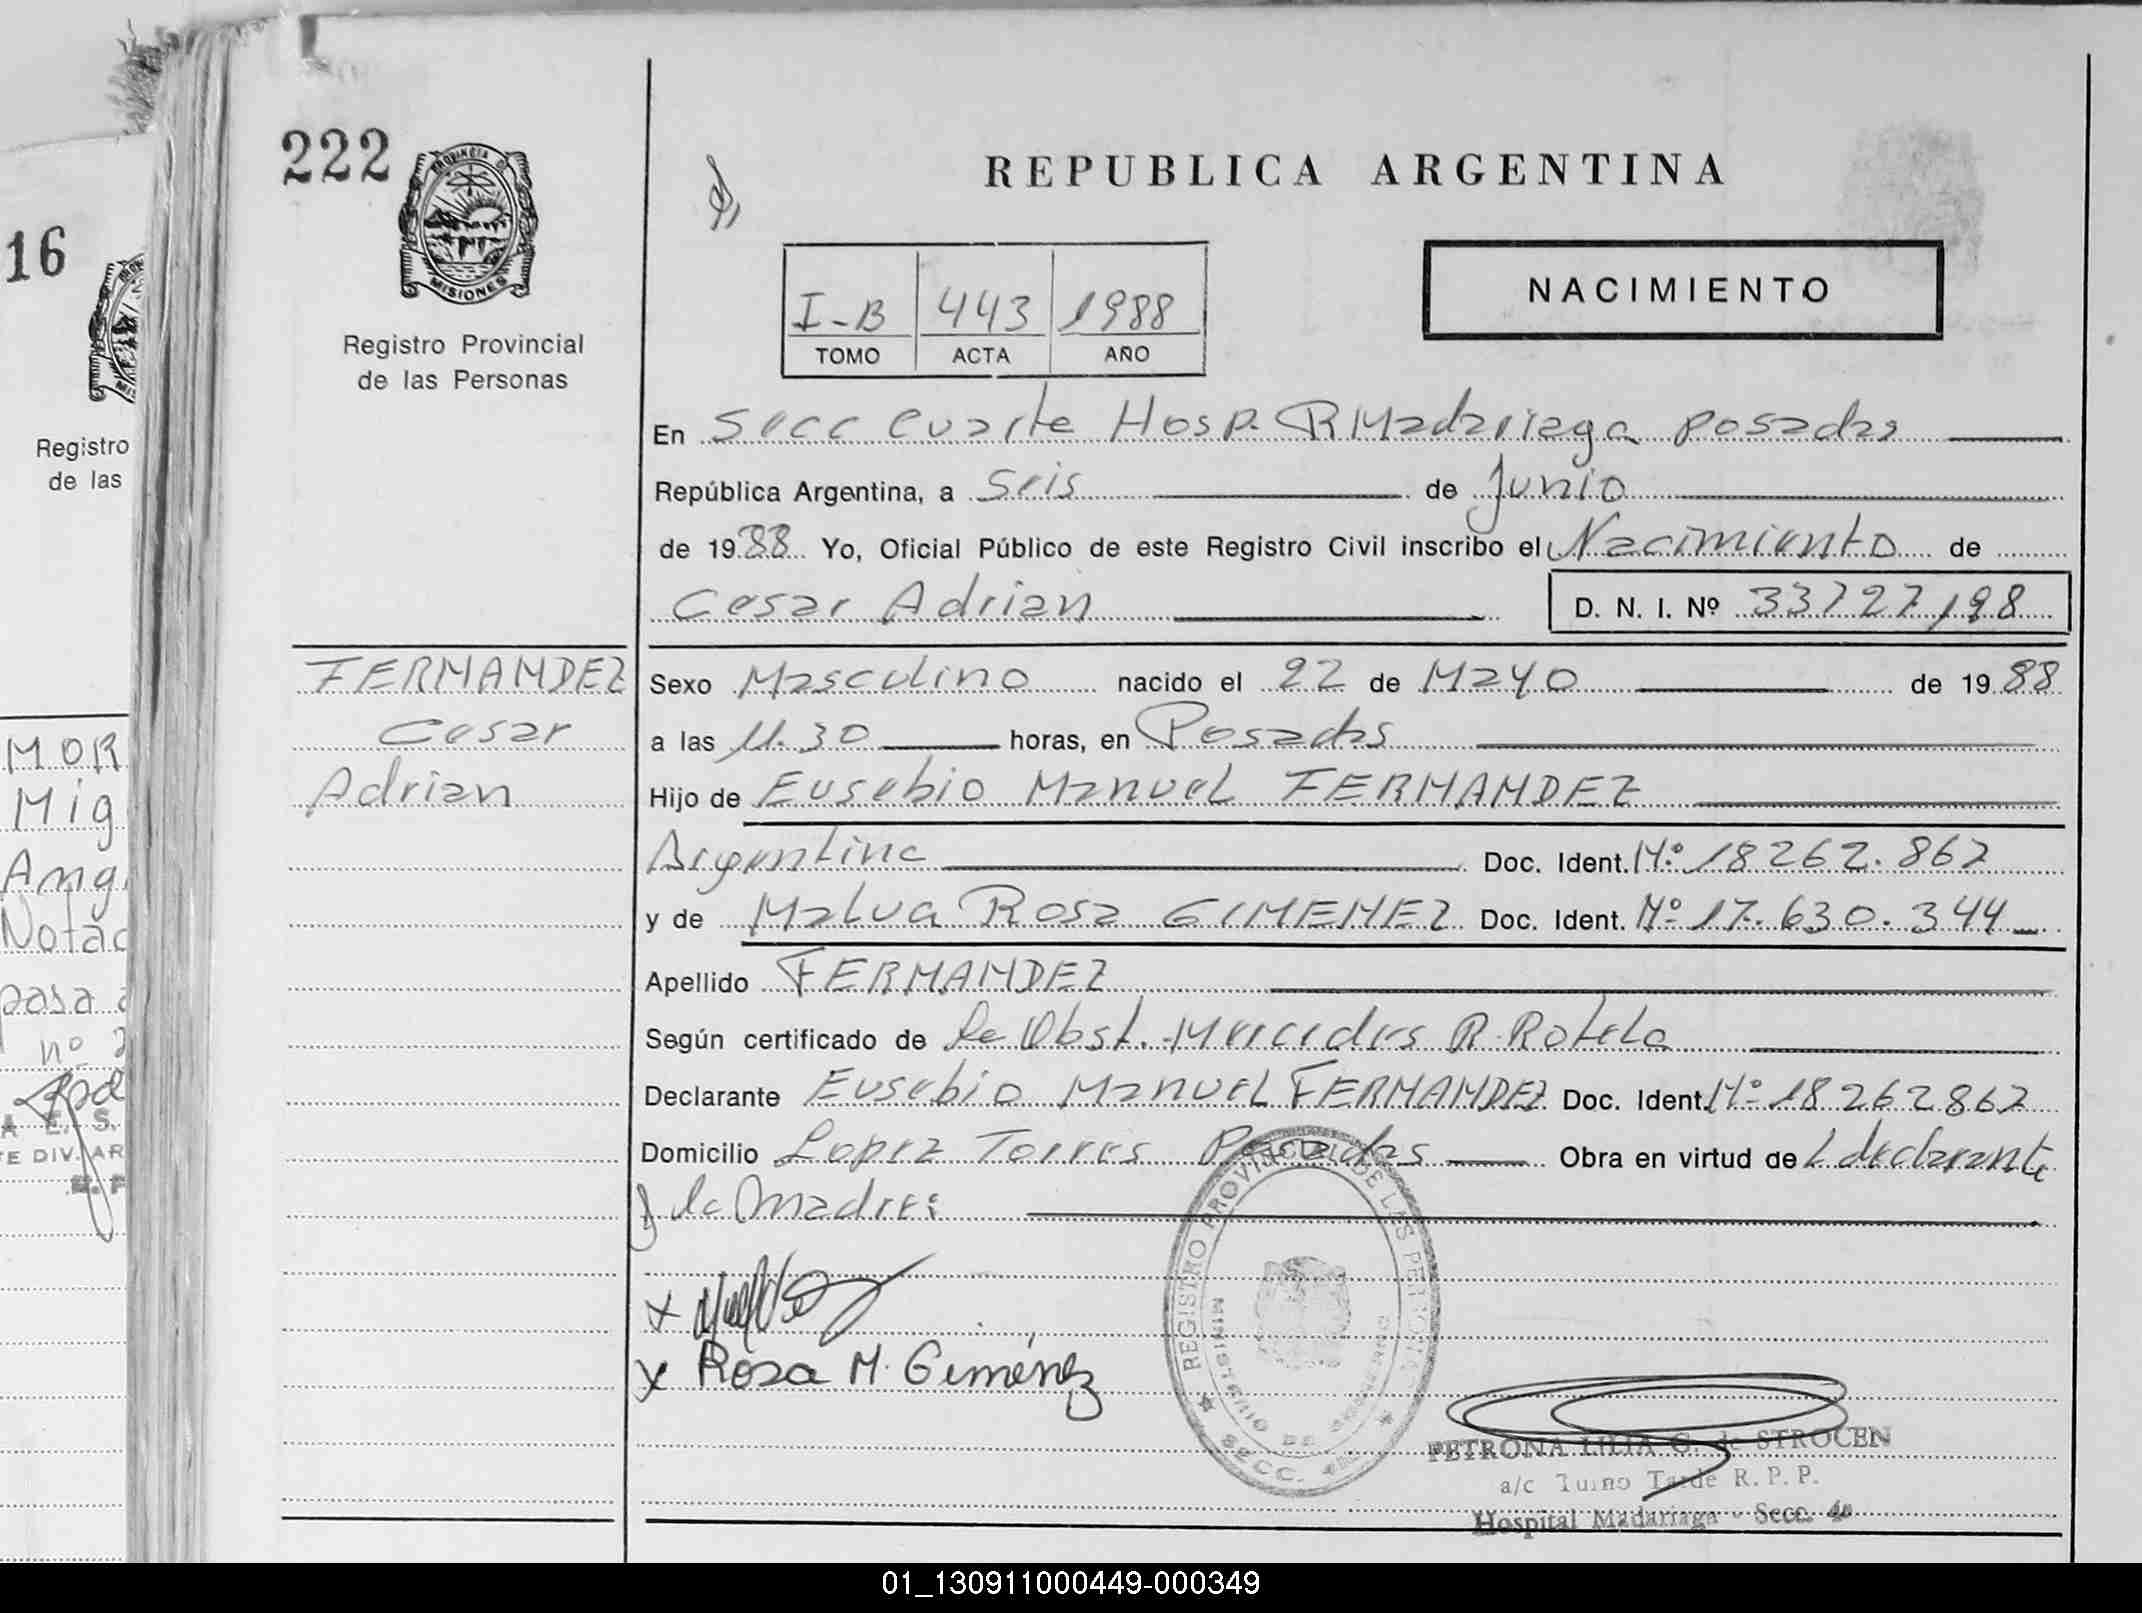 222
PROVINCIA DE
MISIONES
Registro Provincial
de las Personas
REPUBLICA ARGENTINA
NACIMIENTO
I-B 443 1988
TOMO ACTA AÑO
En Secc Cuarta Hosp. R Madariaga Posadas
República Argentina, a Seis de Junio
de 1988 Yo, Oficial Público de este Registro Civil inscribo el Nacimiento de
Cesar Adrian D. N. I. Nº 33727198
FERNANDEZ
Cesar
Adrian
Sexo Masculino nacido el 22 de Mayo de 1988
a las 11.30 horas, en Posadas
Hijo de Eusebio Manuel FERNANDEZ
Argentina Doc. Ident. Nº 18262.862
y de Malva Rosa GIMENEZ Doc. Ident. Nº 17.630.344
Apellido FERNANDEZ
Según certificado de la Obst. Mercedes R. Rotela
Declarante Eusebio Manuel FERNANDEZ Doc. Ident. Nº 18262862
Domicilio Lopez Torres Posadas Obra en virtud de L declarante
y la Madre:
x
x Rosa M. Giménez
REGISTRO PROVINCIAL DE LAS PERSONAS
MINISTERIO DE GOBIERNO
SECC. 4
PETRONA LILIA G. de STROCEN
a/c Turno Tarde R. P. P.
Hospital Madariaga - Secc. 4a
16
Registro
de las
MOR
Mig
Ang
Notac
pasa a
nº 2
A E. S.
TE DIV. AR
01_130911000449-000349